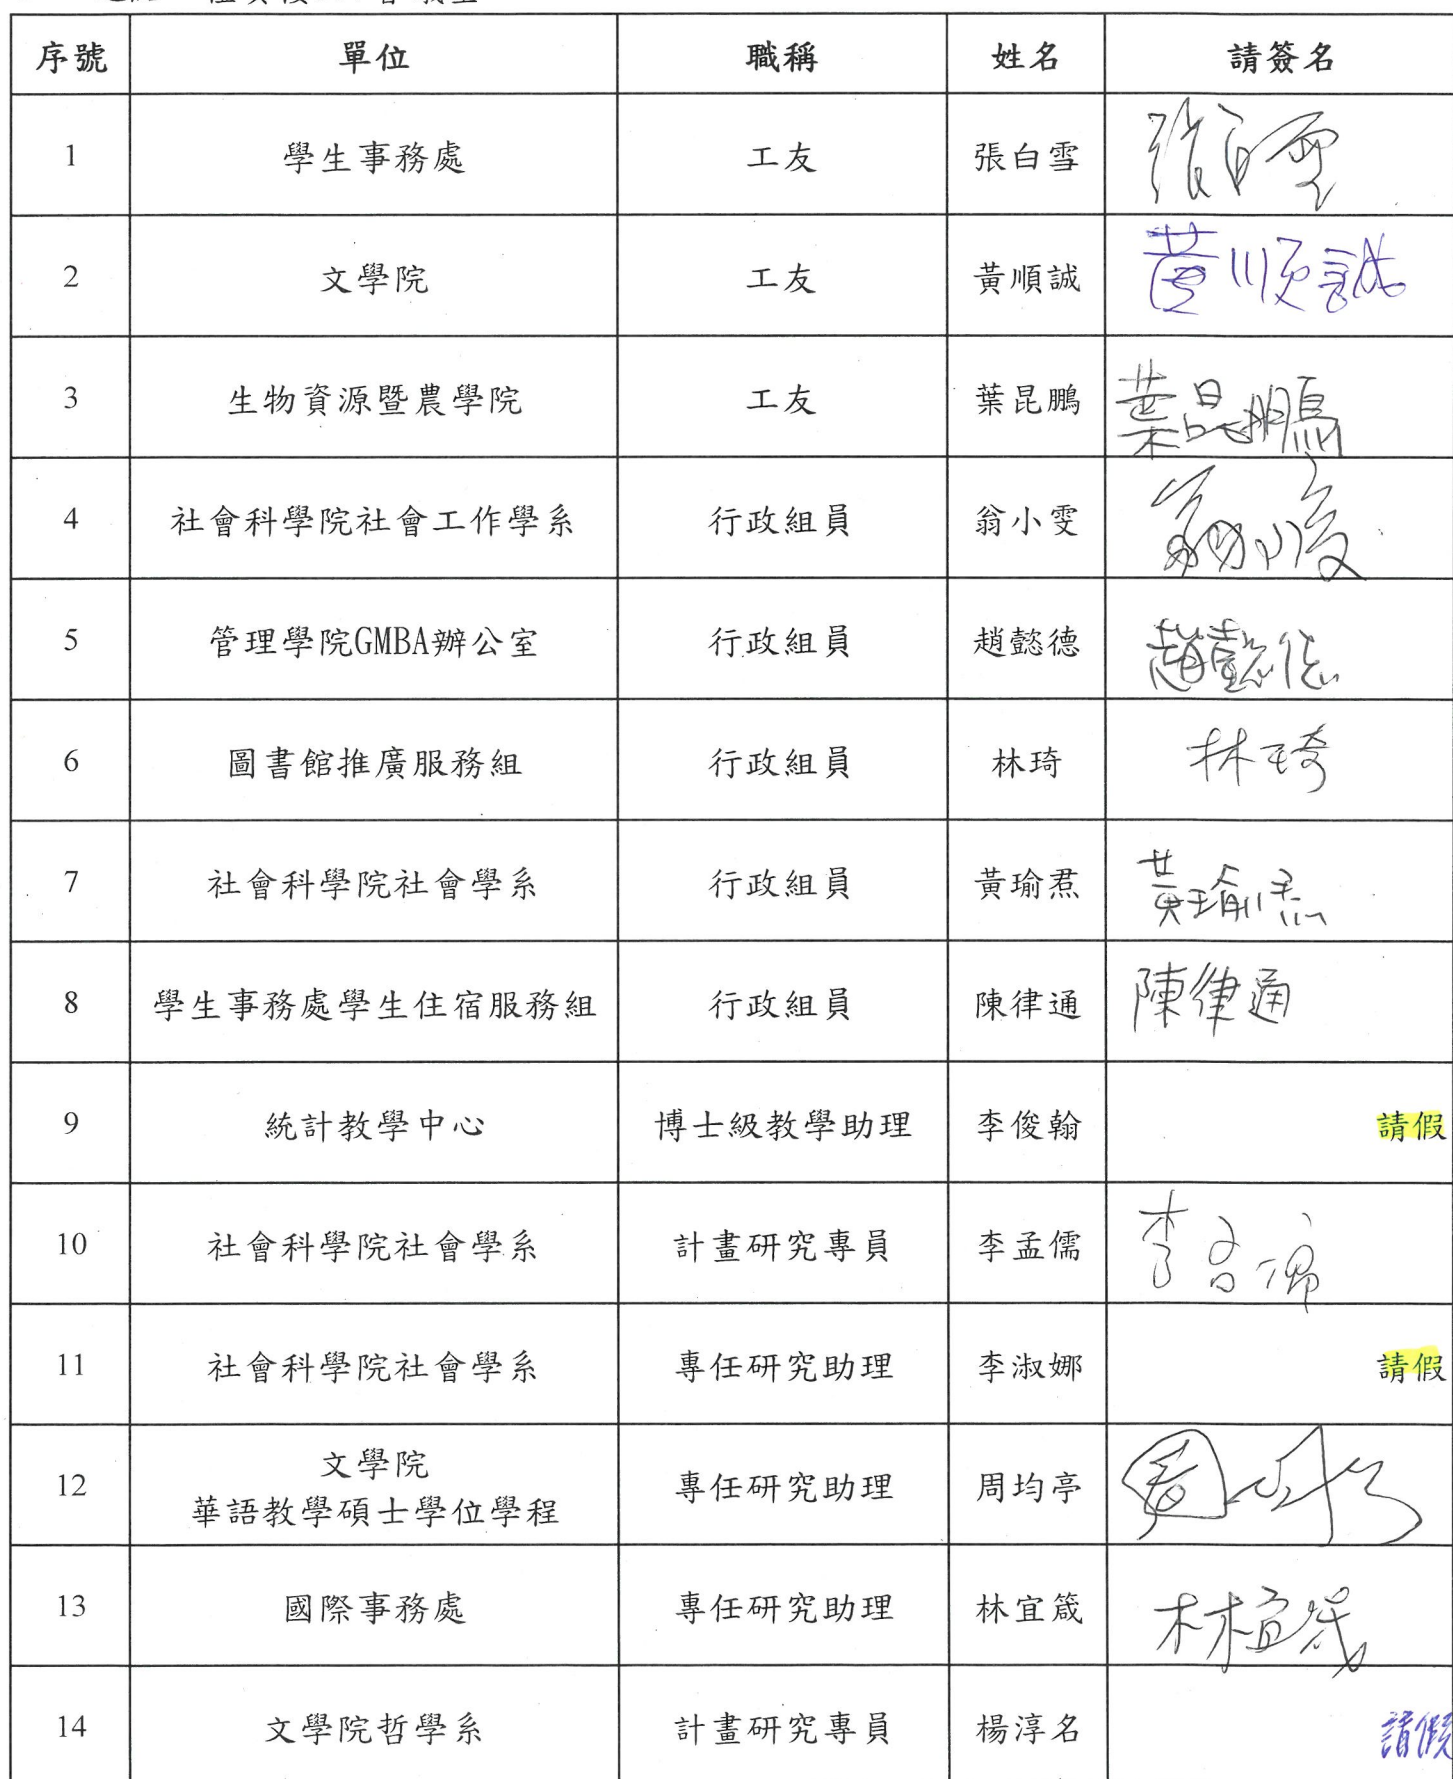 序號 單位 職稱 姓名 請簽名
1 學生事務處 工友 張白雪 張白雪
2 文學院 工友 黃順誠 黃順誠
3 生物資源暨農學院 工友 葉昆鵬 葉昆鵬
4 社會科學院社會工作學系 行政組員 翁小雯
5 管理學院GMBA辦公室 行政組員 趙懿德 趙懿德
6 圖書館推廣服務組 行政組員 林琦 林琦
7 社會科學院社會學系 行政組員 黃瑜焄 黃瑜焄
8 學生事務處學生住宿服務組 行政組員 陳律通 陳律通
9 統計教學中心 博士級教學助理 李俊翰 請假
10 社會科學院社會學系 計畫研究專員 李孟儒
11 社會科學院社會學系 專任研究助理 李淑娜 請假
12 文學院
華語教學碩士學位學程 專任研究助理 周均亭
13 國際事務處 專任研究助理 林宜箴 林宜箴
14 文學院哲學系 計畫研究專員 楊淳名 請假